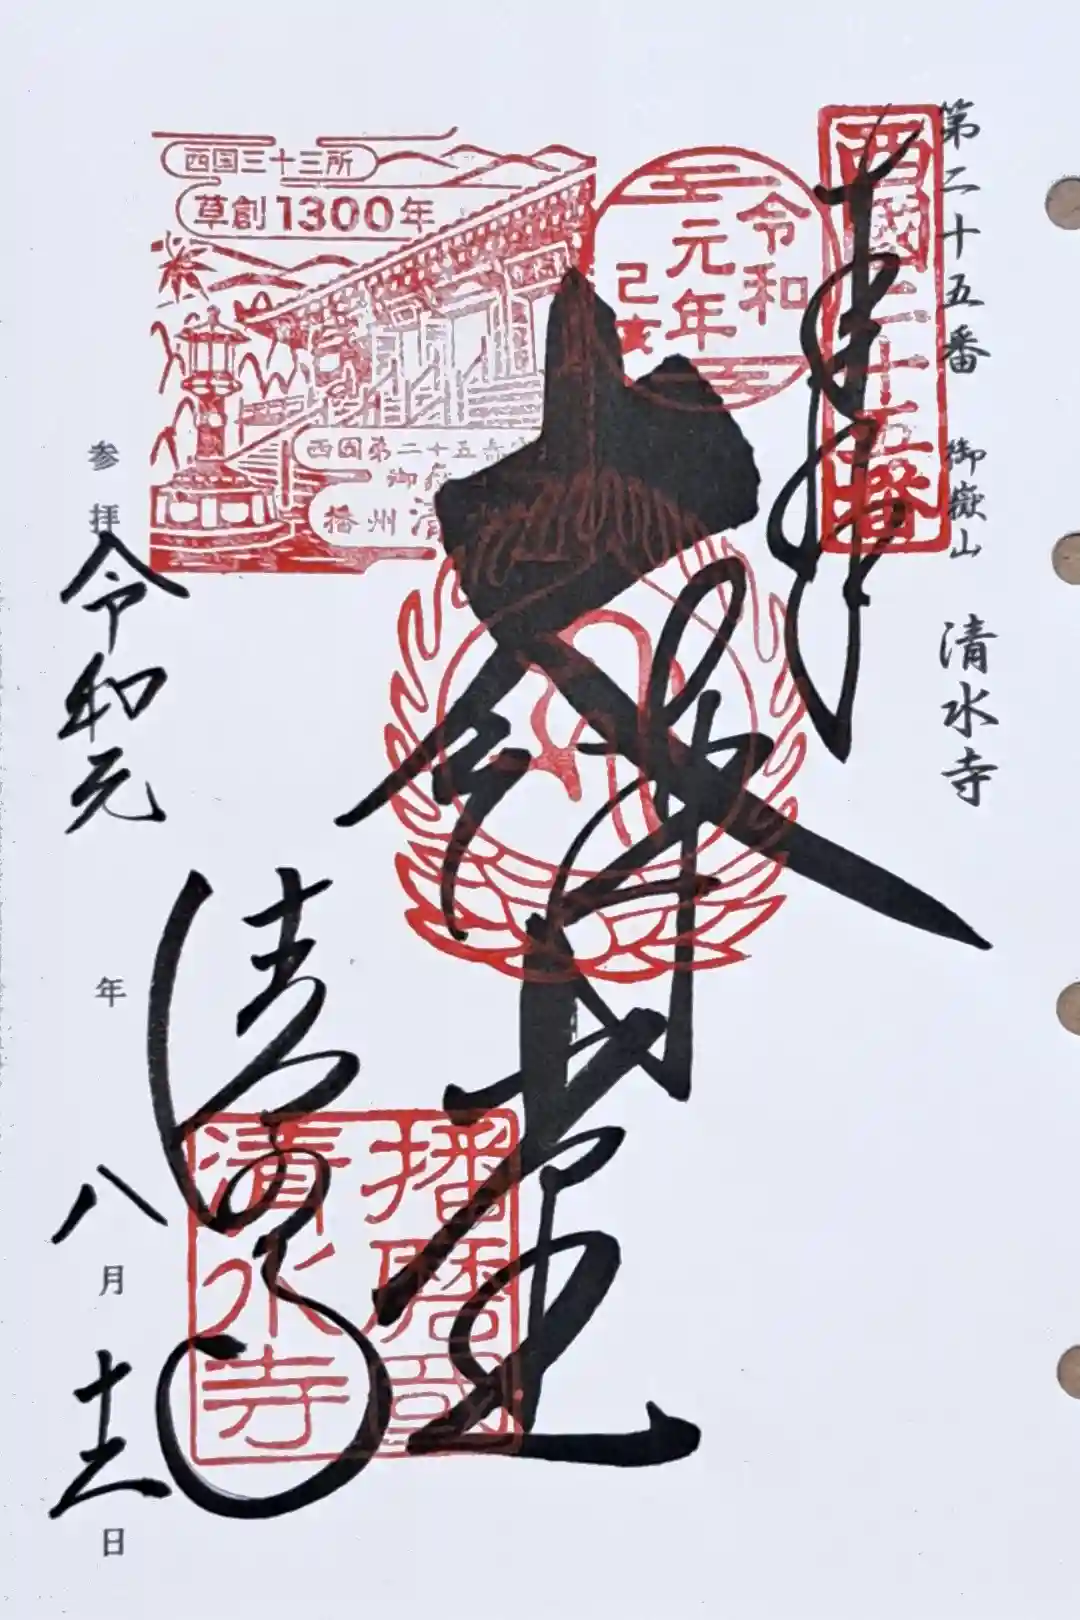 第二十五番 御嶽山 清水寺
西國二十五番
奉拝
令和
元年
己亥
西国三十三所
草創1300年
西国第二十五番
御嶽
播州 清
大講堂
清水寺
播磨國
清水寺
参拝
令和元年
八月
日